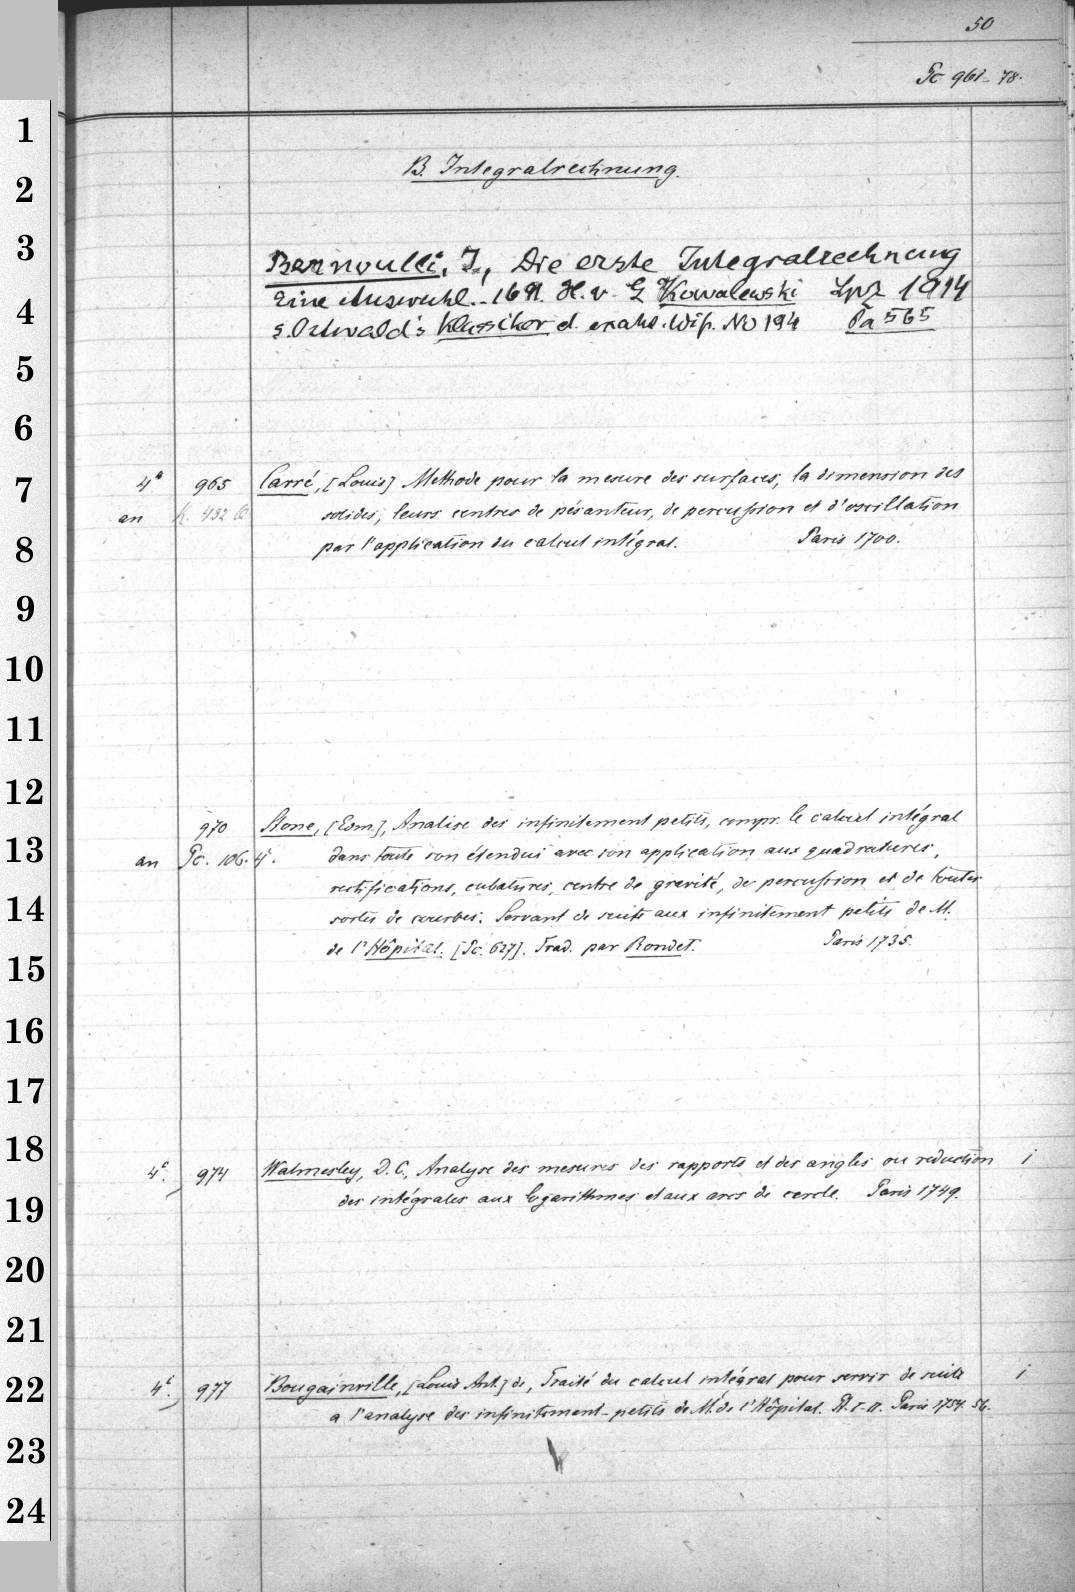 50
Pc 961-78.
B. Integralrechnung.
Bernoulli, J., Die erste Integralrechnung
Eine Auswahl. H. v. G Kowalewski Lpz 1914
s. Ostwald's Klassiker d. exakt. Wiss. No 194 Pa 565
4° 965 Carré, [Louis] Methode pour la mesure des surfaces, la dimension des
an solides, leurs centres de pésanteur, de percussion et d'oscillation
par l'application du calcul intégral. Paris 1700.
970 Stone, [Edm.], Analise des infinitement petits, compr. le calcul intégral
an Pc. 106. 4°. dans toute son étendui avec son application aux quadratures,
rectifications, cubatures, centre de gravité, de percussion et de toutes
sortes de courbes. Servant de suite aux infinitement petits de M.
de l'Hôpital. [Pc. 627]. Trad. par Rondet. Paris 1735.
4°. 974 Walmesley, D. C., Analyse des mesures des rapports et des angles ou reduction i
des intégrales aux logarithmes et aux arcs de cercle. Paris 1749.
4°. 977 Bougainville, [Louis Ant.] de, Traité du calcul intégral pour servir de suite i
a l'analyse des infinitement-petits de M. de l'Hôpital. Pt. I-II. Paris 1754. 56.
1
2
3
4
5
6
7
8
9
10
11
12
13
14
15
16
17
18
19
20
21
22
23
24